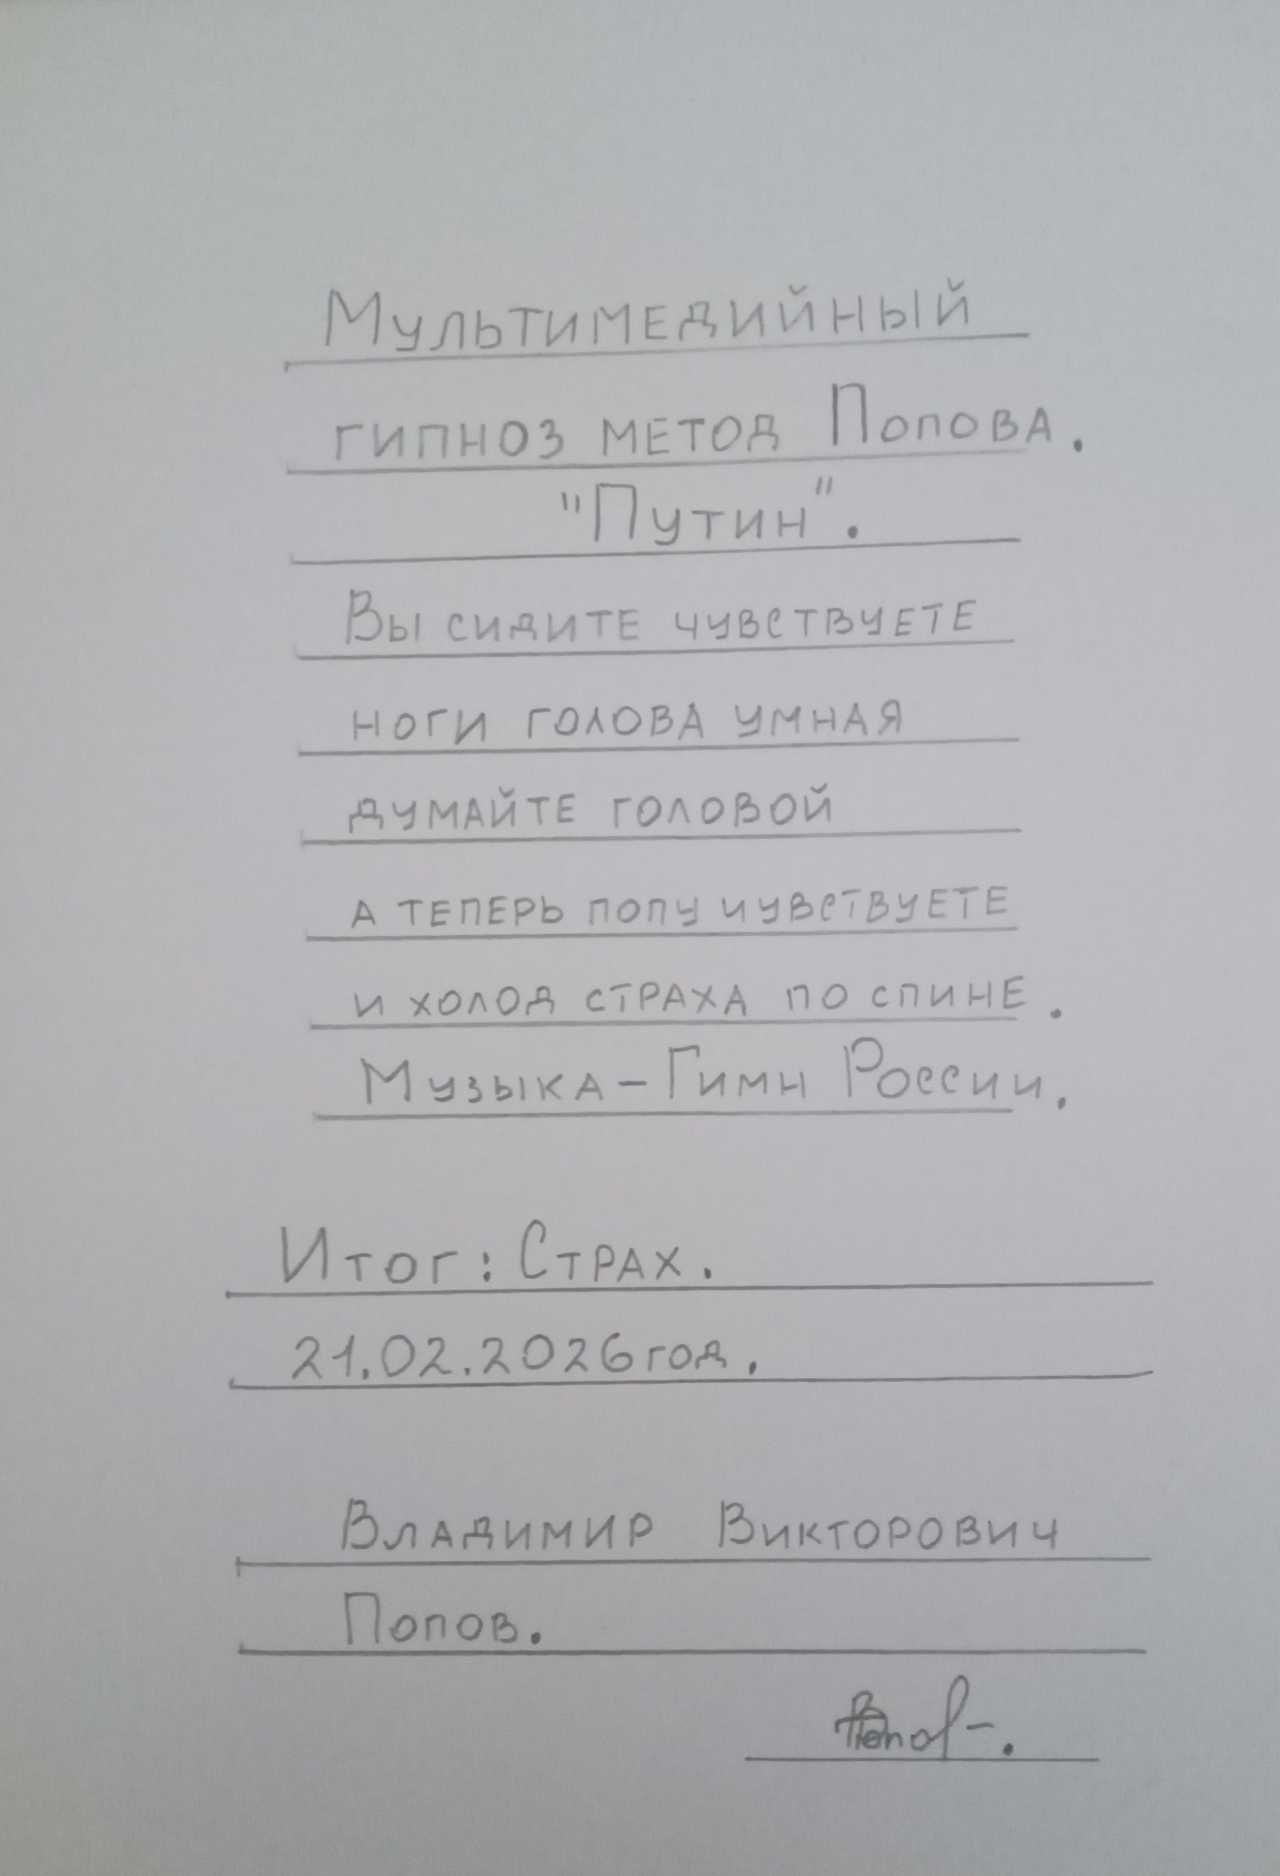 Мультимедийный
гипноз метод Попова.
"Путин".
Вы сидите чувствуете
ноги голова умная
думайте головой
а теперь попу чувствуете
и холод страха по спине.
Музыка - Гимн России.
Итог: Страх.
21.02.2026 год.
Владимир Викторович
Попов.